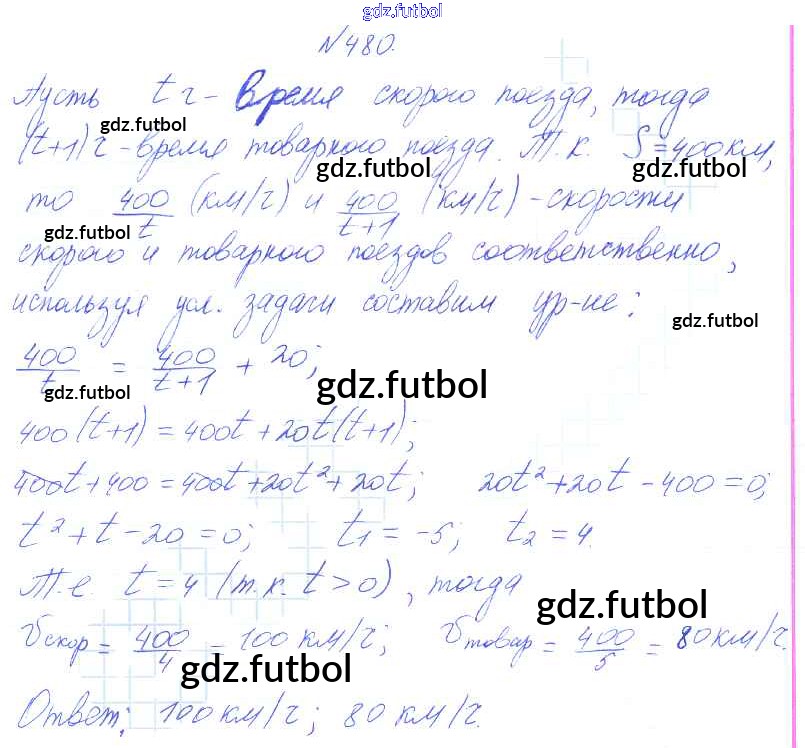 gdz.futbol
№480.
Пусть t ч – время скорого поезда, тогда
gdz.futbol
(t+1) ч – время товарного поезда. Т.к. S=400км,
gdz.futbol
то 400/t (км/ч) и 400/t+1 (км/ч) - скорости
gdz.futbol gdz.futbol
скорого и товарного поездов соответственно,
используя усл. задачи составим ур-ие:
gdz.futbol
400/t = 400/t+1 + 20;
gdz.futbol gdz.futbol
400(t+1) = 400t + 20t(t+1);
400t+400 = 400t+20t²+20t; 20t²+20t - 400 = 0;
t² + t - 20 = 0; t₁ = -5; t₂ = 4.
Т.е. t = 4 (т.к. t > 0), тогда
gdz.futbol
Vскор = 400/4 = 100 км/ч; Vтовар = 400/5 = 80 км/ч.
gdz.futbol
Ответ: 100 км/ч; 80 км/ч.